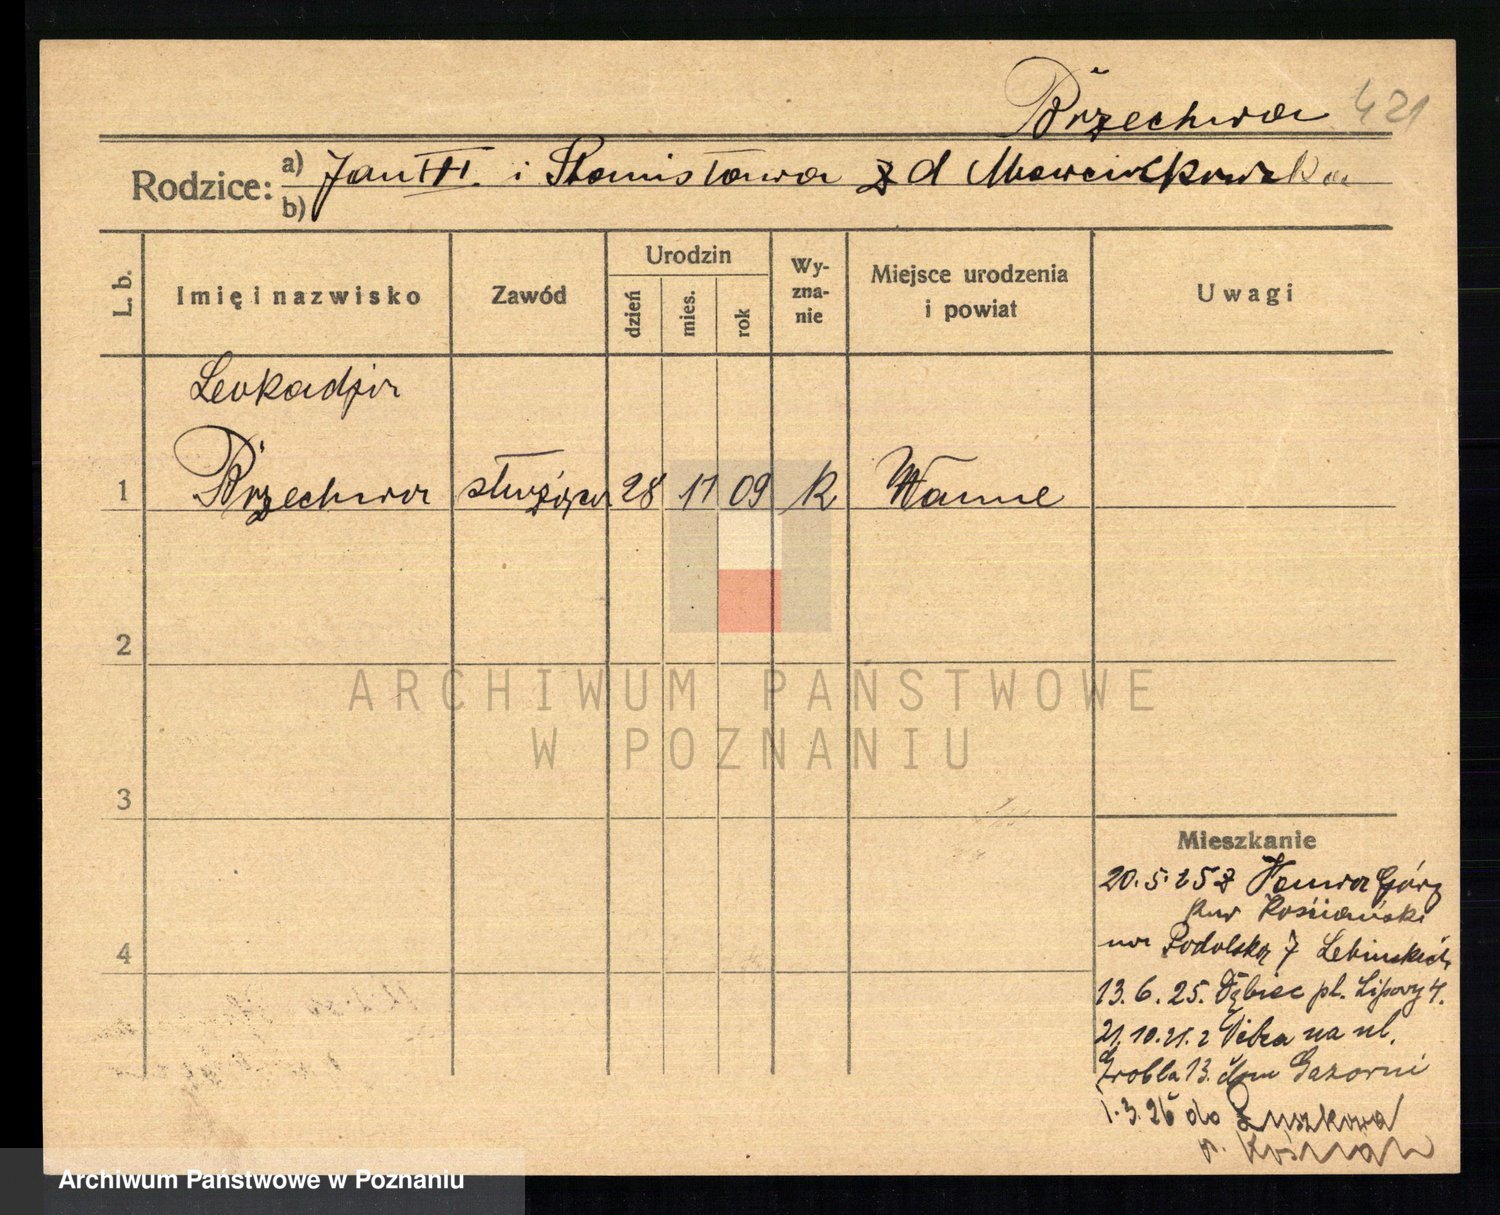 Brzechwa 421
Rodzice: a) Jan i Stanisława z d Marcinkowska
b)
L. b. Imię i nazwisko Zawód Urodzin dzień mies. rok Wy-zna-nie Miejsce urodzenia i powiat Uwagi
Leokadja
1 Brzechwa służąca 28 11 09 k Wanne
2
ARCHIWUM PAŃSTWOWE
W POZNANIU
3
Mieszkanie
20.5.25 z Góry
pow Kościański
na Podolska 7
4
13.6.25. Dębiec pl. Lipowy 4.
21.10. na ul.
Grobla 13. Gazowni
1.3.26 do
p. Kościan
Archiwum Państwowe w Poznaniu